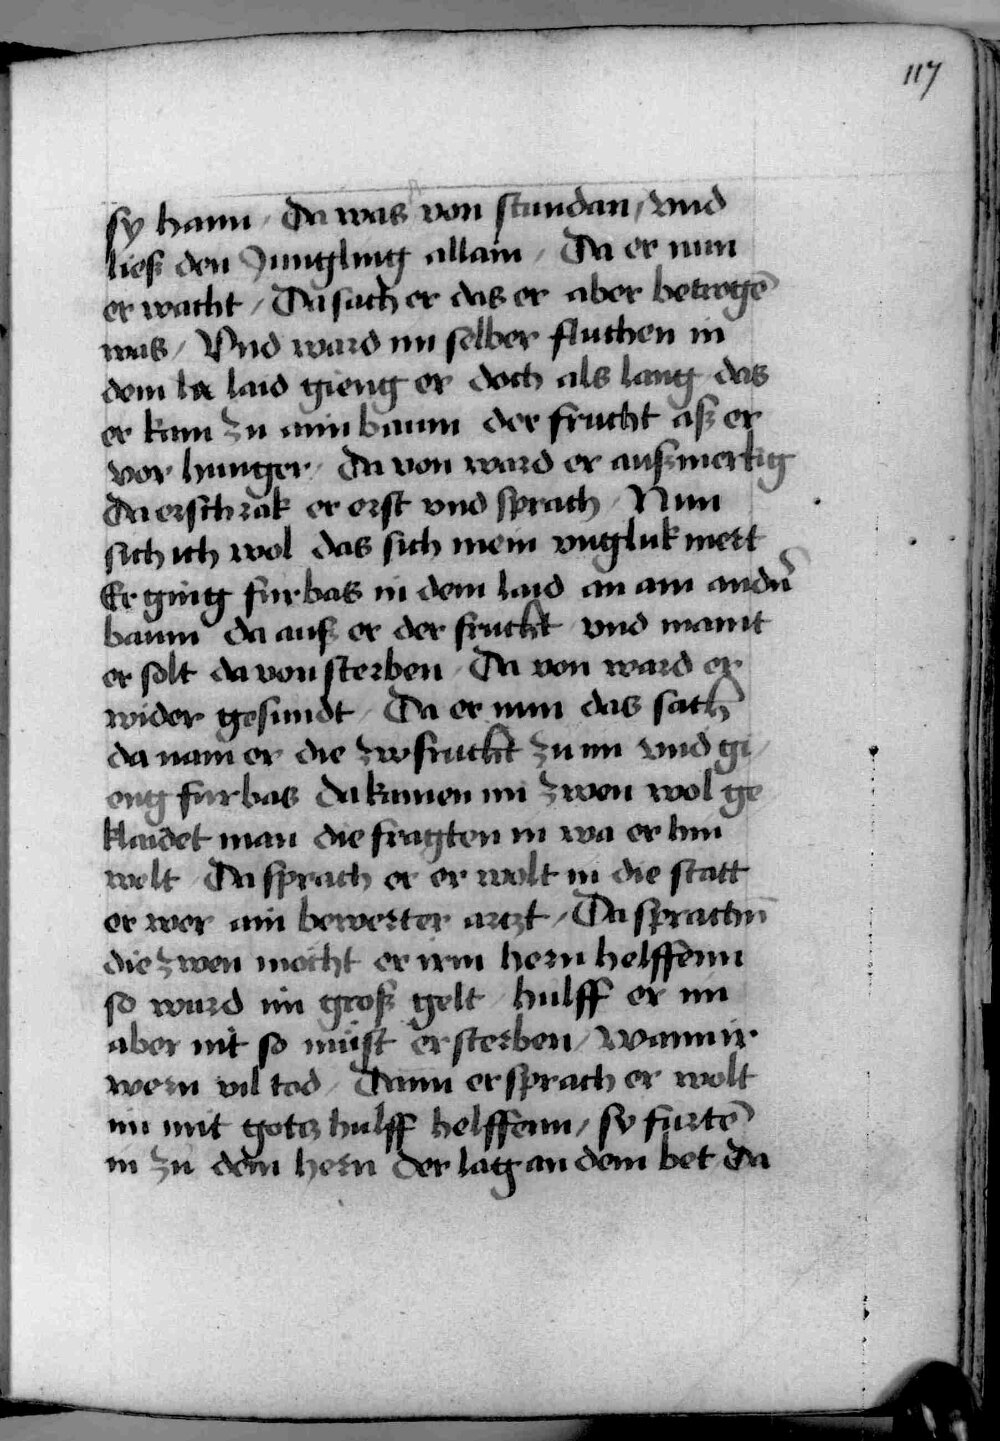 117
sy haim / Da was von stundan / vnd
ließ den Jungling allain / Da er nun
er wacht / Da sach er das er aber betrogē
was / Vnd ward im selber fluchen in
dem la laid gieng er doch als lang das
er kam zu aim baum der frucht aß er
vor hunger / da von ward er außmerkig
Da erschrak er erst vnd sprach / Nun
sich ich wol das sich mein vngluk mert
Er ging furbas in dem laid an am andn̄
baum da auß er der frucht vnd maint
er solt da von sterben / Da von ward er
wider gesundt / Da er nun das sach
da nam er die zw frucht zu im vnd gi /
eng furbas da kamen im zwen wol ge
klaidet man die fragten in wa er hin
welt / Da sprach er er wolt in die statt
er wer ain bewerter artzt / Da sprachn̄
die zwen mocht er irm hern helffenn
so wurd im groß gelt / hulff er im
aber nit so müst er sterben / wann ir
wern vil tod / Dann er sprach er wolt
im mit gotz hulff helffenn / sy furtē
in zu dem hern der lag an dem bet Da